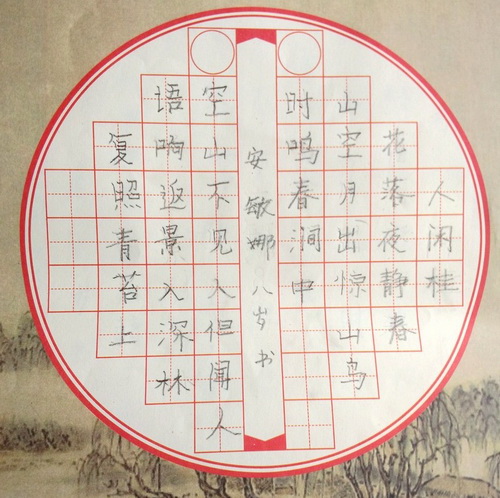 人闲桂
花落夜静春
山空月出惊山鸟
时鸣春涧中
安敏娜八岁书
空山不见人但闻人
语响返景入深林
复照青苔上